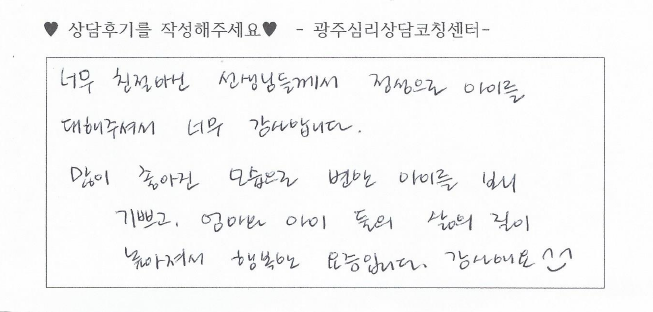 ♥ 상담후기를 작성해주세요♥ - 광주심리상담코칭센터-
너무 친절하신 선생님들께서 정성으로 아이를
대해주셔서 너무 감사합니다.
많이 좋아진 모습으로 변한 아이를 보니
기쁘고, 엄마와 아이 둘의 삶의 질이
높아져서 행복한 요즘입니다. 감사해요